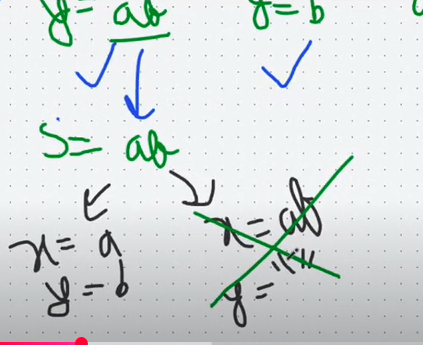 y = ab
y = b
S = ab
x = a
y = b
x = ab
y = " "